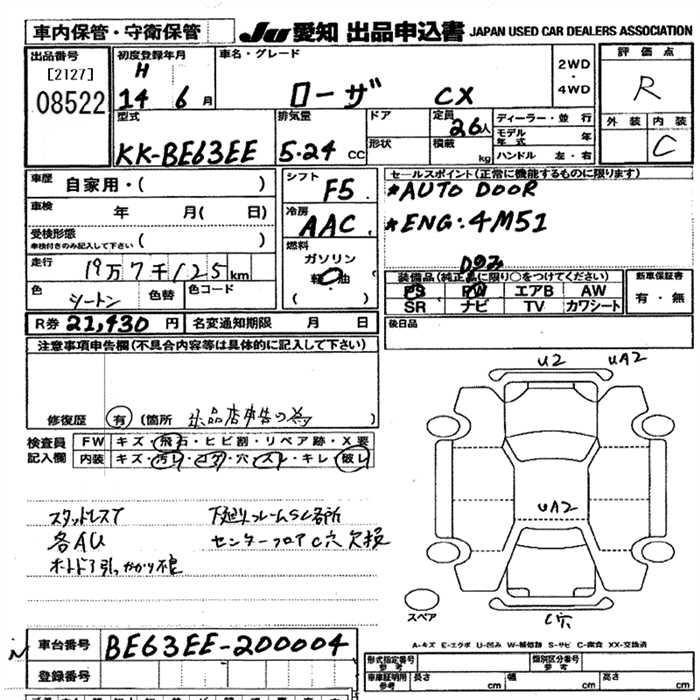 車内保管・守衛保管
JU 愛知 出品申込書 JAPAN USED CAR DEALERS ASSOCIATION
出品番号
[2127]
08522
初度登録年月
H
14 6 月
車名・グレード
ローザ CX
2WD
・
4WD
評価点
R
外装 内装
C
型式
KK-BE63EE
排気量
5.24 CC
ドア
形状
定員
26人
積載
kg
ディーラー・並行
モデル年式 年
ハンドル 左・右
車歴
自家用・( )
車検
年 月( 日)
受検形態
車検付きのみ記入して下さい
( )
走行
19万7千125km
色
ツートン
色替
色コード
シフト
F5
冷房
AAC
燃料
ガソリン
軽油
セールスポイント(正常に機能するものに限ります)
*AUTO DOOR
*ENG:4M51
Dのみ
装備品(純正品に限り○をつけてください)
PS PW エアB AW
SR ナビ TV カワシート
新車保証書
有・無
後日品
R券 21,430 円 名変通知期限 月 日
注意事項申告欄(不具合内容等は具体的に記入して下さい)
修復歴 有 (箇所 出品店申告の為
検査員
記入欄
FW キズ・飛石・ヒビ割・リペア跡・X要
内装 キズ・汚レ・コゲ・穴・スレ・キレ・破レ
スタッドレスT
各AU
下廻りフレームSC各所
センターフロアC穴欠損
オートドア引っかかり不良
U2 UA2
UA2
C穴
スペア
A-キズ E-エクボ U-凹み W-補修跡 S-サビ C-腐食 XX-交換済
車台番号
BE63EE-200004
登録番号
形式指定番号
参考
類別区分番号
参考
車庫証明用
参考
長さ cm 幅 cm 高さ cm